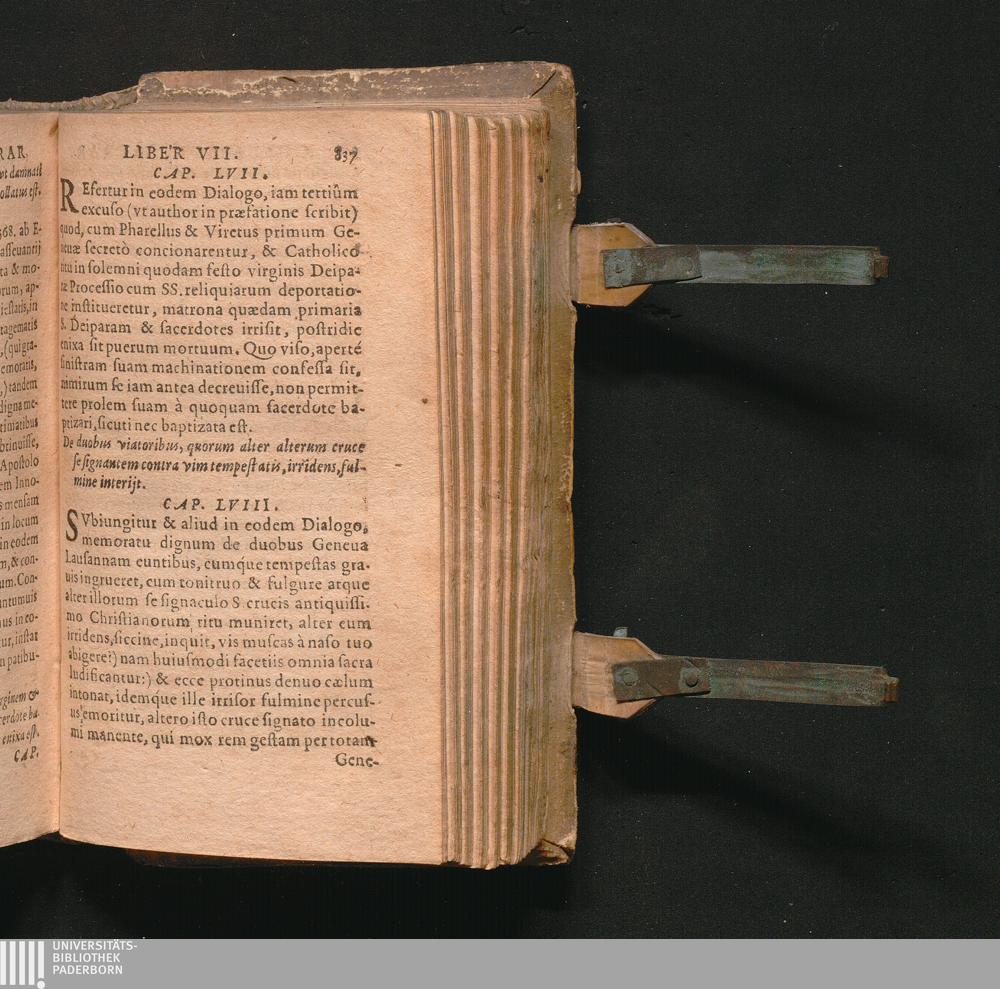 RAR.
vt damnatI
ollatus est.
568. ab E-
asseuantij
ta & mo-
orum, ap-
iestatis, in
tagematis
, (qui gra-
emoratis,
,) tandem
digna me-
timatibus
btinuisse,
Apostolo
em Inno-
s mensam
in locum
in eodem
m, & con-
um. Con-
ntumuis
us in eo-
tur, instat
n patibu-
rginem &
cerdote ba
enixa est.
CAP.
LIBER VII. 837
CAP. LVII.
REfertur in eodem Dialogo, iam tertiûm
excuso (vt author in præfatione scribit)
quod, cum Pharellus & Viretus primum Ge-
neuæ secretò concionarentur, & Catholicò
ritu in solemni quodam festo virginis Deipa-
ræ Processio cum SS. reliquiarum deportatio-
ne institueretur, matrona quædam primaria
S. Deiparam & sacerdotes irrisit, postridie
enixa sit puerum mortuum. Quo viso, aperté
sinistram suam machinationem confessa sit,
nimirum se iam antea decreuisse, non permit-
tere prolem suam à quoquam sacerdote ba-
ptizari, sicuti nec baptizata est.
De duobus viatoribus, quorum alter alterum cruce
se signantem contra vim tempestatis, irridens, ful-
mine interijt.
CAP. LVIII.
SVbiungitur & aliud in eodem Dialogo,
memoratu dignum de duobus Geneua
Lausannam euntibus, cumque tempestas gra-
uis ingrueret, cum tonitruo & fulgure atque
alter illorum se signaculo S crucis antiquissi-
mo Christianorum ritu muniret, alter eum
irridens, siccine, inquit, vis muscas à naso tuo
abigere?) nam huiusmodi facetiis omnia sacra
ludificantur:) & ecce protinus denuo cælum
intonat, idemque ille irrisor fulmine percus-
us emoritur, altero isto cruce signato incolu-
mi manente, qui mox rem gestam per totam
Gene-
UNIVERSITÄTS-
BIBLIOTHEK
PADERBORN